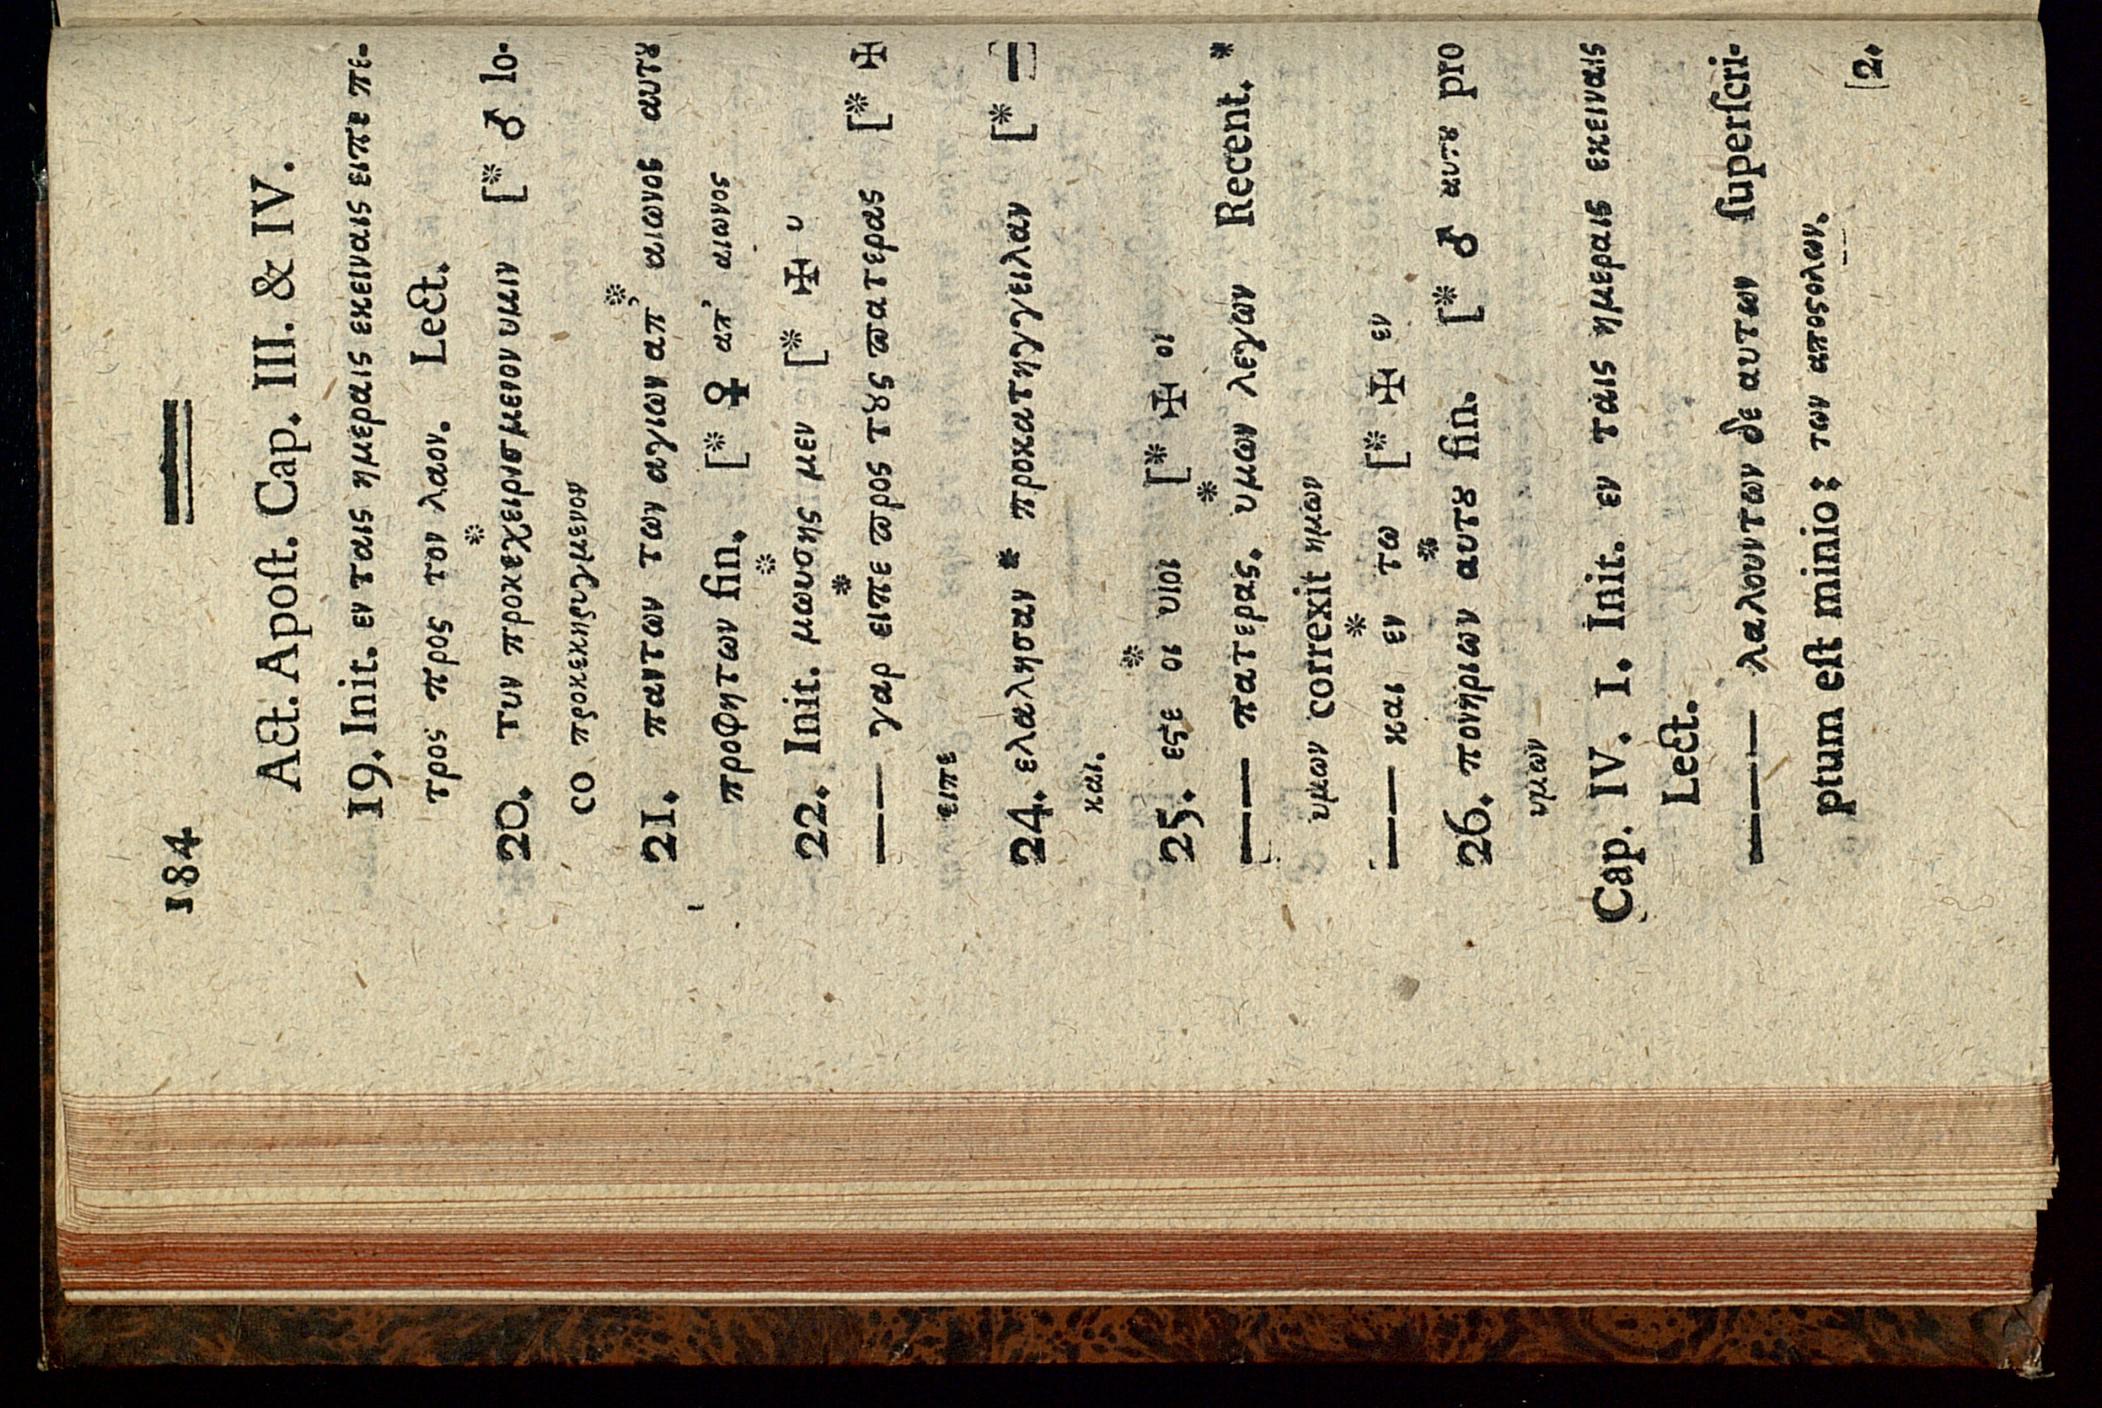 184
Act. Apoſt. Cap. III. & IV.
19. Init. εν ταις ημεραις εκειναις ειπε πε-
τρος προς τον λαον. Lect.
20. τυν προκεχειρισμενον υμιν [* ♂ lo-
co προκεκηρυγμενον
21. παντων των αγιων απ’ αιωνος αυτȣ
προφητων fin. [* ♀ απ’ αιωνος
22. Init. μωυσης μεν [* ✠ υ
—— γαρ ειπε προς τȣς πατερας [* ✠
ειπε
24. ελαλησαν * προκατηγγειλαν [* —
και.
25. εϛε οι υιοι [* ✠ οι
—— πατερας. υμων λεγων Recent. *
υμων correxit ημων
—— και εν τω [* ✠ εν
26. πονηριων αυτȣ fin. [* ♂ αυτȣ pro
υμων
Cap. IV. 1. Init. εν ταις ημεραις εκειναις
Lect.
—— λαλουντων δε αυτων ſuperſcri-
ptum eſt minio; των αποϛολων.
[2.